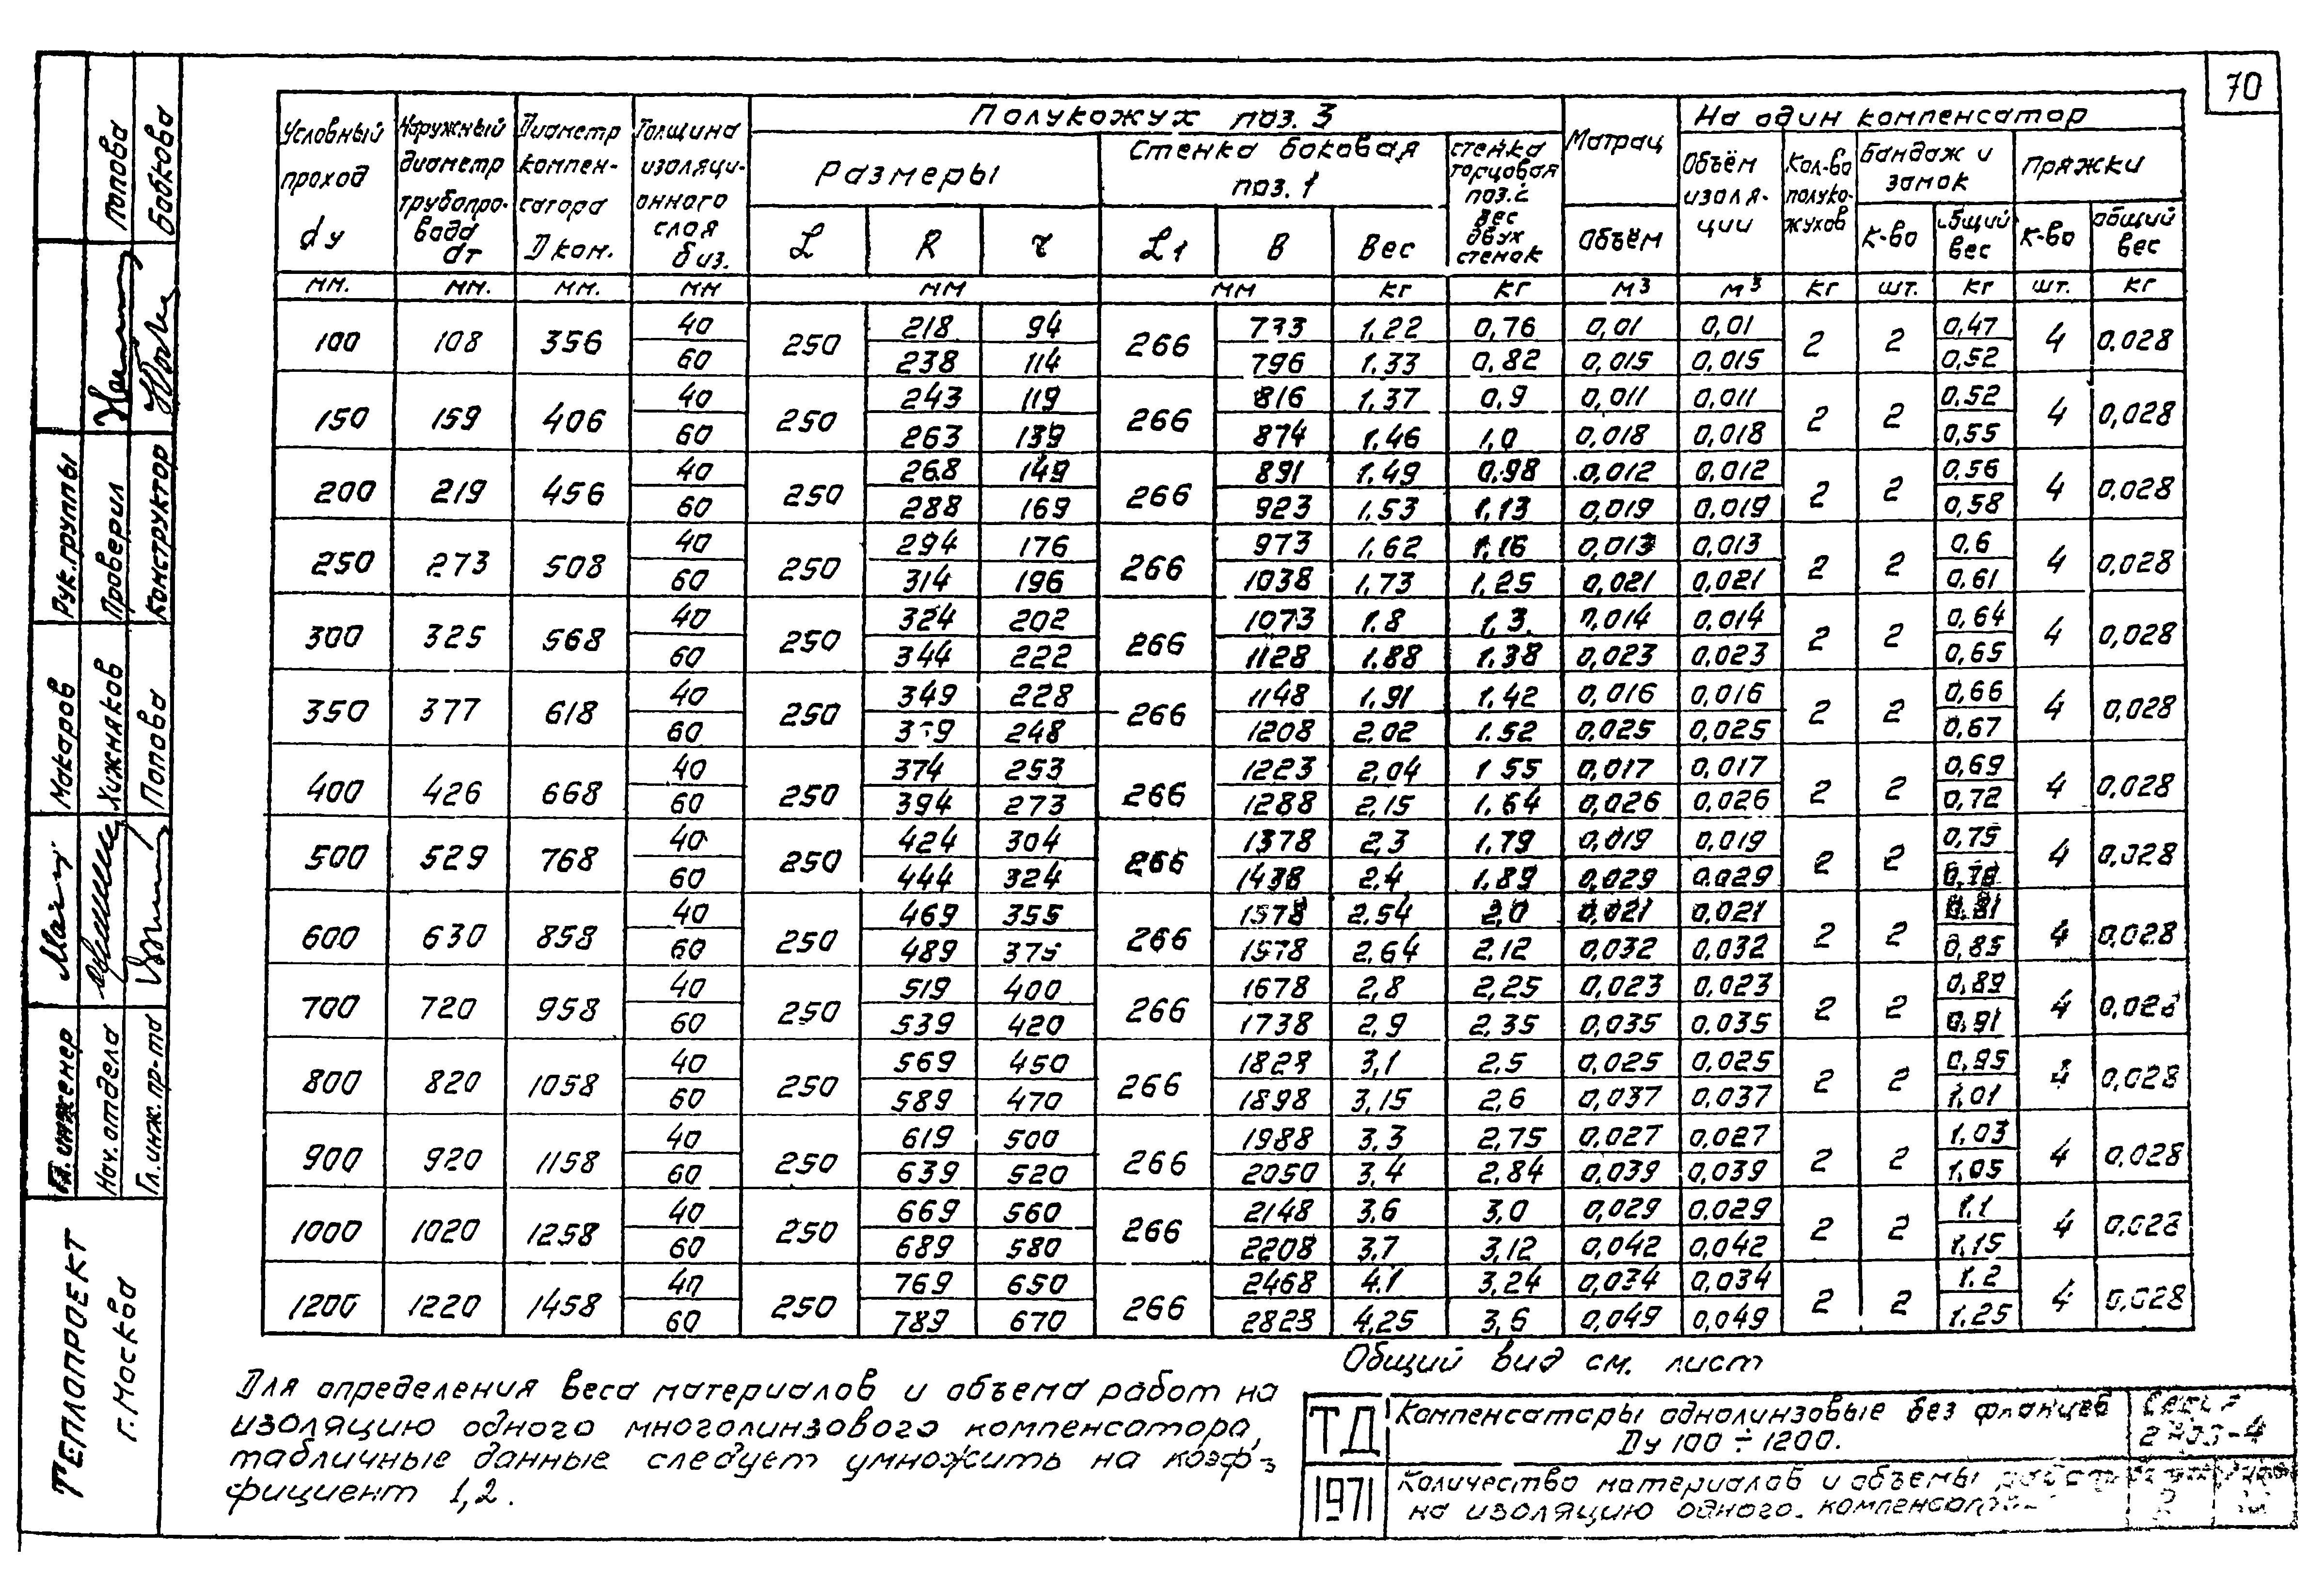 70
Условный проход dу
Наружный диаметр трубопровода dт
Диаметр компенсатора Dком.
Толщина изоляционного слоя биз.
Полукожух поз. 3
Матрац
На один компенсатор
Размеры
Стенка боковая поз. 1
Стенка торцовая поз. 2 вес двух стенок
Объём изоляции
Кол-во полукожухов
Бандаж и замок
Пряжки
L R r L1 B Вес Объём К-во общий вес К-во общий вес
мм. мм. мм. мм мм мм кг кг м³ м³ кг шт. кг шт. кг
100 108 356 40 250 218 94 266 733 1,22 0,76 0,01 0,01 2 2 0,47 4 0,028
60 238 114 796 1.33 0,82 0,015 0,015 0,52
150 159 406 40 250 243 119 266 816 1,37 0,9 0,011 0,011 2 2 0,52 4 0,028
60 263 139 874 1.46 1,0 0,018 0,018 0,55
200 219 456 40 250 268 149 266 891 1.49 0.98 0,012 0,012 2 2 0,56 4 0,028
60 288 169 923 1.53 1,13 0,019 0,019 0,58
250 273 508 40 250 294 176 266 973 1,62 1,16 0,013 0,013 2 2 0,6 4 0,028
60 314 196 1038 1,73 1,25 0,021 0,021 0,61
300 325 568 40 250 324 202 266 1073 1.8 1,3 0,014 0,014 2 2 0,64 4 0,028
60 344 222 1128 1.88 1.38 0,023 0,023 0,65
350 377 618 40 250 349 228 266 1148 1,91 1,42 0,016 0,016 2 2 0,66 4 0,028
60 248 1208 2,02 1.52 0,025 0,025 0,67
400 426 668 40 250 374 253 266 1223 2,04 1 55 0,017 0,017 2 2 0,69 4 0,028
60 394 273 1288 2,15 1,64 0,026 0,026 0,72
500 529 768 40 250 424 304 266 1378 2,3 1,79 0,019 0,019 2 2 0,75 4 0,028
60 444 324 1438 2.4 1,89 0,029 0.029 0,78
600 630 858 40 250 469 355 266 2.54 2,0 0,021 0,021 2 2 0,81 4 0,028
60 489 375 1578 2,64 2,12 0,032 0,032 0,85
700 720 958 40 250 519 400 266 1678 2,8 2,25 0,023 0,023 2 2 0,89 4 0,028
60 539 420 1738 2,9 2,35 0,035 0,035 0,91
800 820 1058 40 250 569 450 266 1828 3,1 2,5 0,025 0,025 2 2 0,95 4 0,028
60 589 470 1898 3,15 2,6 0,037 0,037 1,01
900 920 1158 40 250 619 500 266 1988 3,3 2,75 0,027 0,027 2 2 1,03 4 0,028
60 639 520 2050 3,4 2,84 0,039 0,039 1,05
1000 1020 1258 40 250 669 560 266 2148 3,6 3,0 0,029 0.029 2 2 1.1 4 0,028
60 689 580 2208 3,7 3,12 0,042 0,042 1,15
1200 1220 1458 40 250 769 650 266 2468 4.1 3,24 0,034 0,034 2 2 1.2 4 0,028
60 789 670 2828 4,25 3,6 0,049 0,049 1.25
Общий вид см. лист
Для определения веса материалов и объема работ на
изоляцию одного многолинзового компенсатора,
табличные данные следует умножить на коэф-
фициент 1,2.
ТД
1971
Компенсаторы однолинзовые без фланцев
Dу 100 ÷ 1200.
Количество материалов и объемы работ
на изоляцию одного компенсатора
Попова
Бобкова
Рук. группы
Проверил
Конструктор
Макаров
Хижняков
Попова
Гл. инженер
Нач. отдела
Гл. инж. пр-та
ТЕПЛОПРОЕКТ
г. Москва